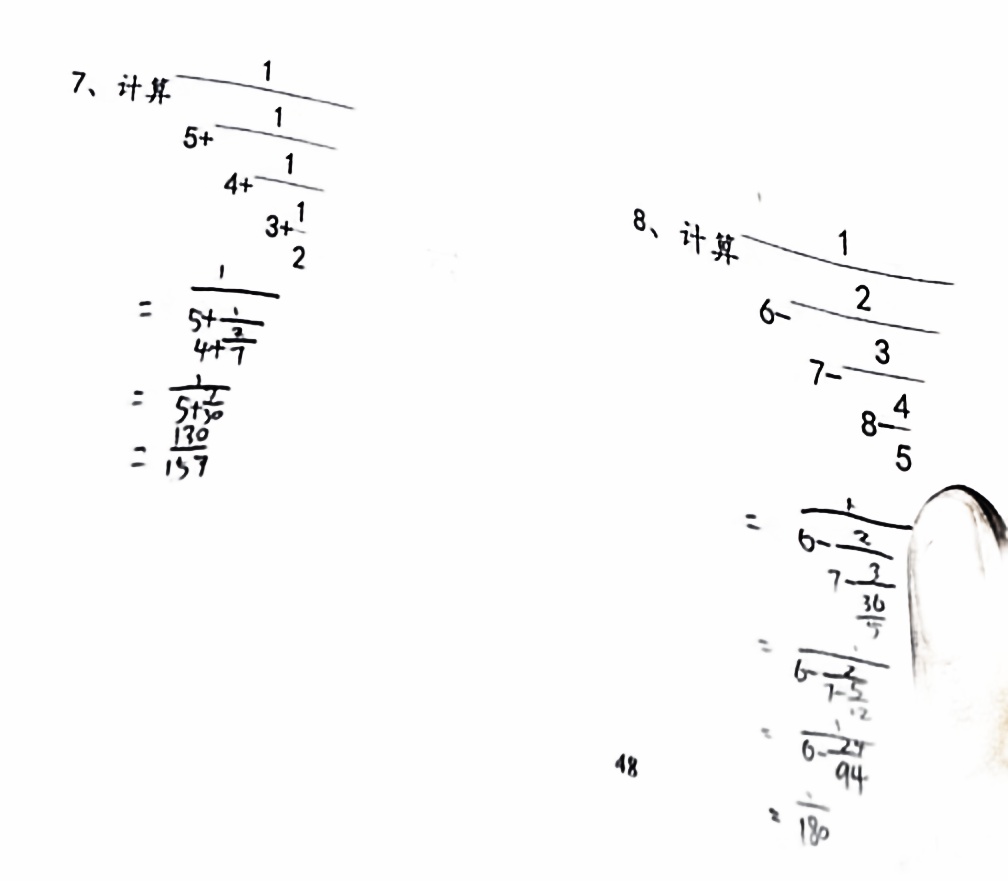 7、计算 1
5+ 1
4+ 1
3+ 1
2
= 1
5+ 1
4+ 2
7
= 1
5+ 7
30
= 130
157
8、计算 1
6- 2
7- 3
8- 4
5
= 1
6- 2
7- 3
36
5
= 1
6- 2
7- 5
12
= 1
6- 24
94
= 1
180
48